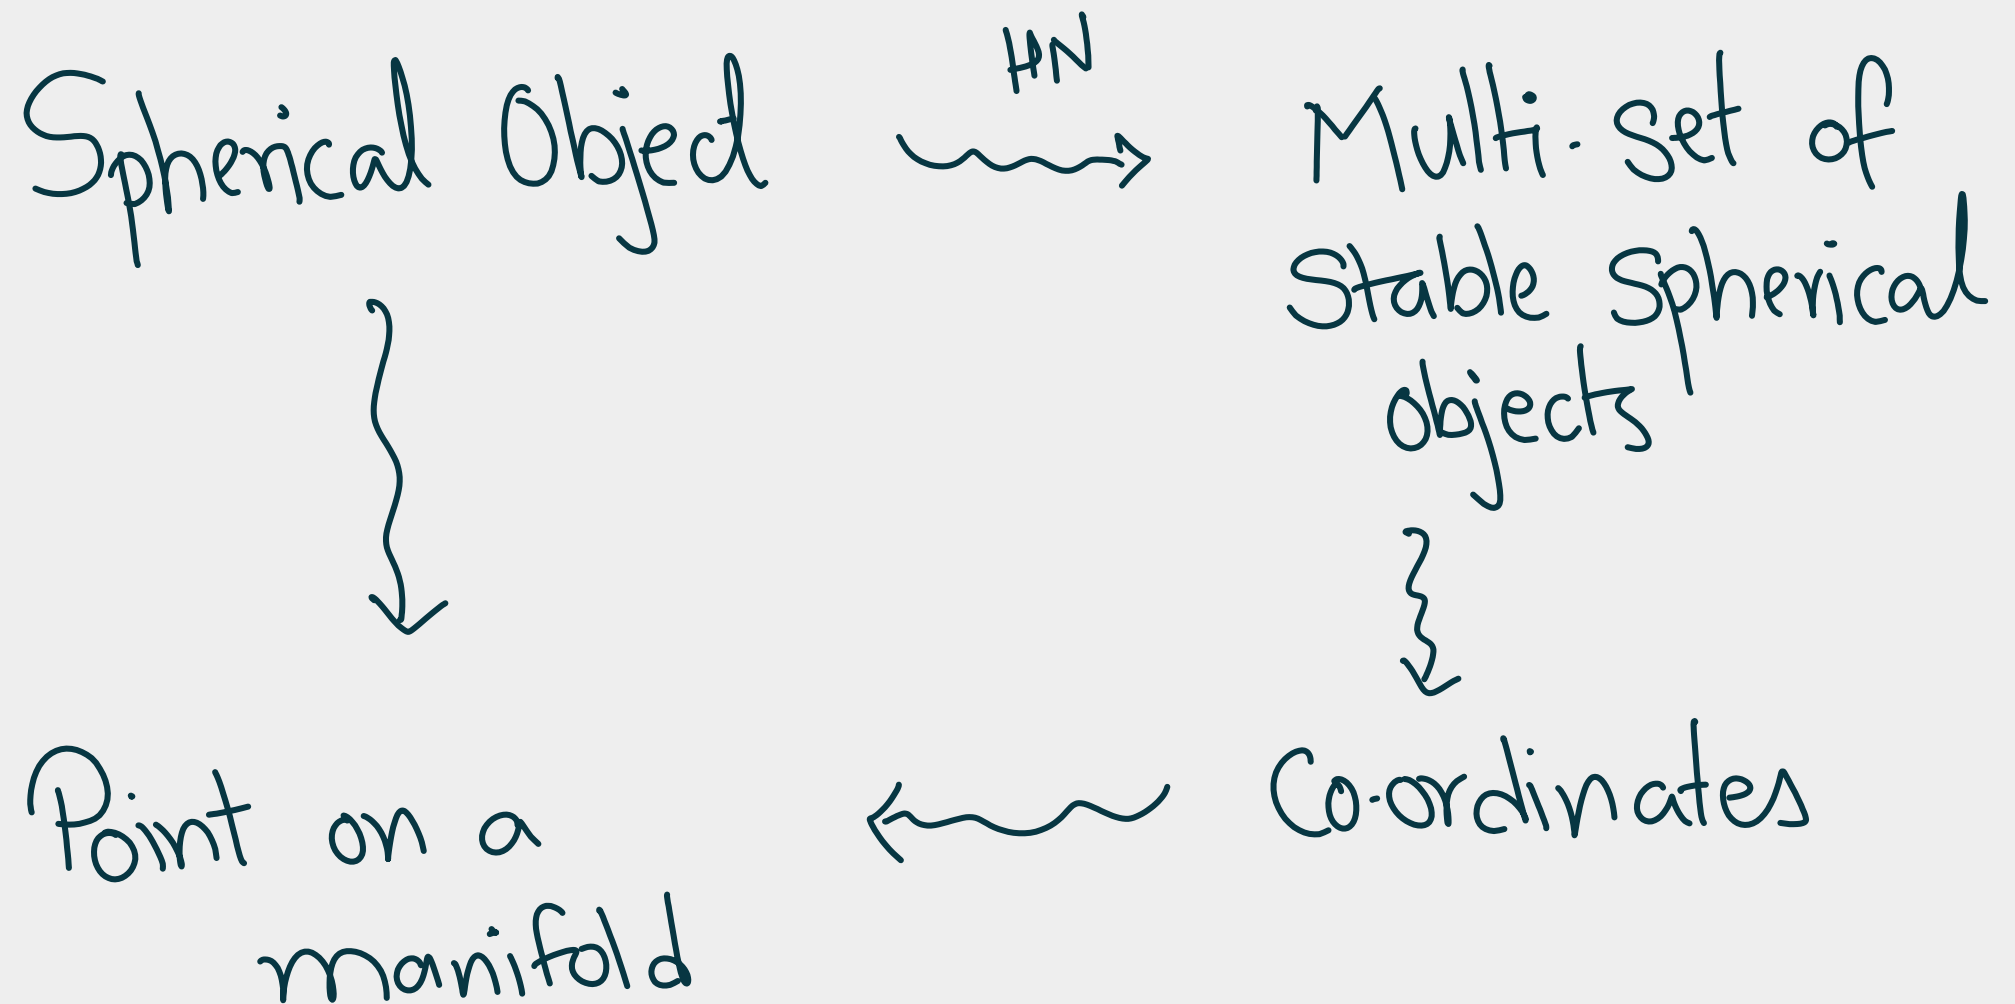 HN
Spherical Object
Multi-set of
Stable Spherical
objects
Co-ordinates
Point on a
manifold